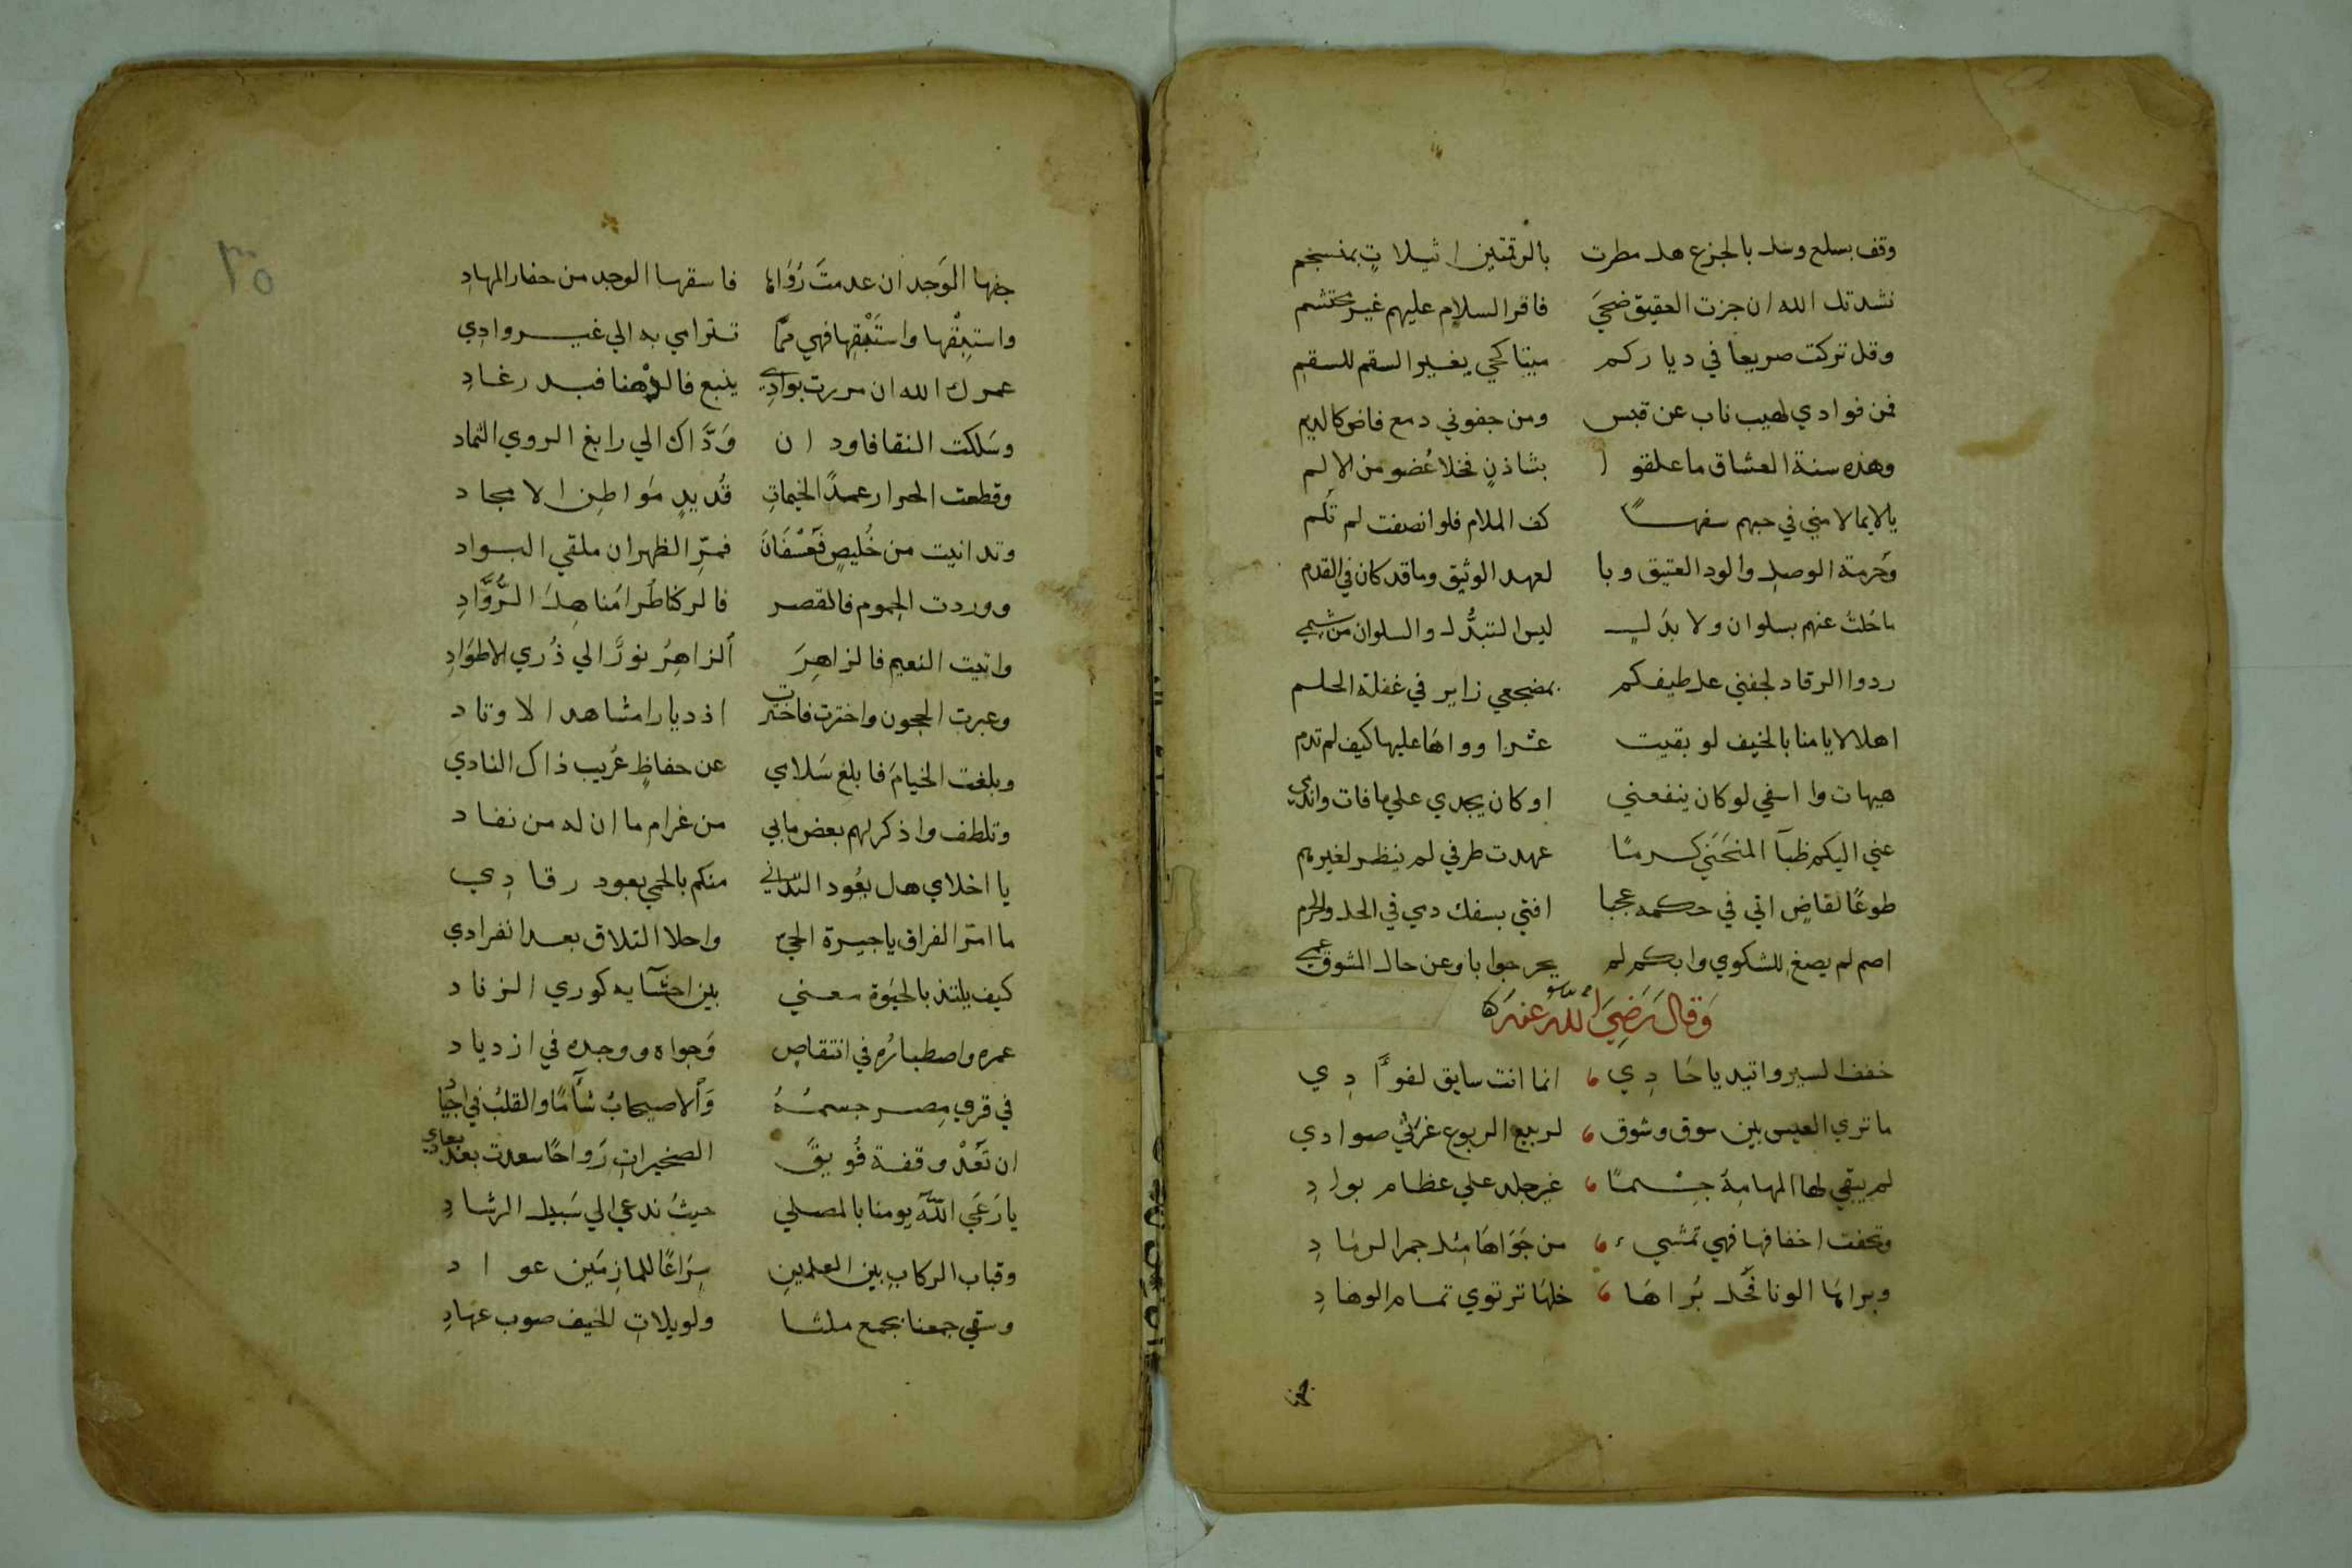 وقف بسلع وسل بالجزع هل مطرت بالرقمتين اثيلات بمنسجم
نشدتك الله ان جزت العقيق ضحي فاقر السلام عليهم غير محتشم
وقل تركت صريعا في دياركم ميتا كحي يعير السقم للسقم
فمن فوادي لهيب ناب عن قبس ومن جفوني دمع فاض كالديم
وهذه سنة العشاق ما علقوا بشاذنٍ فخلا عُضو من الالم
يالايما لامني في حبهم سفهًا كف الملام فلو انصفت لم تَلم
وحُرمة الوصل والود العتيق وبا لعهد الوثيق وما قد كان في القدم
ما حُلت عنهم بسلوان ولا بدَلٍ ليس التبدُّل والسلوان من شِيمي
ردوا الرقاد لجفني عل طيفكم بمضجعي زاير في غفلة الحلم
اهلا لايامنا بالخيف لو بقيت عشرا وواهًا عليها كيف لم تدم
هيهات وا اسفي لو كان ينفعني او كان يجدي علي ما فات واندمي
عني اليكم ظبآ المنحَنَي كرمًا عهدت طرفي لم ينظر لغيرهم
طوعًا لقاضٍ اتي في حكمه عجبا افتي بسفك دمي في الحل والحرم
اصم لم يصغ للشكوي وابكم لم يحر جوابا وعن حال المشوق عمي
وَقَالَ رَضِيَ اللهُ عنه
خفف السير واتيد يا حَادِي انما انت سايق لفوًادِي
ما تري العيس بين سوق وشوق لربيع الربوع غرثي صوادي
لم يبقي لها المهامِهُ جِسْمًا غير جلد علي عظام بوادِ
وتحفت اخفافها فهي تمشي من جَوَاهَا مِثل جمر الرمَادِ
وبراها الونا فحُل بُراهَا خلها ترتوي تمام الوهادِ
جفها
٣٥
جفها الوَجد ان عدمتَ رُوَاها فاسقها الوجد من حفار المهادِ
واستبِقْها واستَبْقها فهي مما تترامي به الي غير وادِي
عمرك الله ان مررت بوادِي ينبع فالدهنا فبدر غادِ
وسَلكت النقا فاودان وَدَّاك الي رابغ الروي الثماد
وقطعت الحرار عمدًا لخيماتِ قُديدٍ مَواطِن الامجاد
وتدانيت من خُليصٍ فَعُسْفَانَ فمَرِّ الظهران ملقي البواد
ووردت الجموم فالقصر فالركنا طُرا مُناهِلَ الرُّوَّادِ
واتيت النعيم فالزاهِرَ الزاهِرُ نورًا الي ذُري الاطوَادِ
وعبرت الحجون واخترت فاخترت اذديارا مشاهد الاوتاد
وبلغت الخيامَ فابلغ سَلامي عن حفاظٍ عُريب ذاك النادي
وتلطف واذكر لهم بعض مابي من غرام ما ان له من نفاد
يا اخلاي هل يعُود التداني منكم بالحمي بعود رقادِي
ما امرّ الفراق يا جيرة الحيّ واحلا التلاق بعد انفرادي
كيف يلتذ بالحيوة معني بين احشآيه كوري الزناد
عمره واصطبارُه في انتقاص وَجواه ووجده في ازدياد
في قري مِصر جسمُهُ وَالاصيحابُ شآمًا والقلبُ في اجيَادُ
ان تَعُدْ وقفة فُويقَ الصخيراتِ رَواحًا سعدت بعد بعادي
يا رَعَي اللهُ يومنا بالمصلي حيثُ ندعي الي سَبيل الرشادِ
وقباب الركابِ بين العلمينِ سِرَاعًا للمازِمَين غواد
وسقي جمعنا بجمع ملثا ولويلاتِ الخيف صوب عهادِ